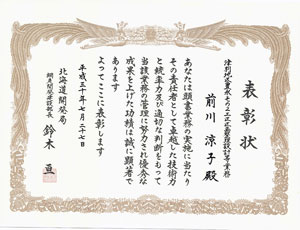 表彰状
前川 涼子 殿
あなたは頭書業務の実施に当たり
その責任者として卓越した技術力
と統率力及び適切な判断をもって
当該業務の管理に努力され優秀な
成果を上げた功績は誠に顕著で
あります
よってここに表彰します
平成三十年七月二十七日
北海道開発局
網走開発建設部長 鈴木 亘